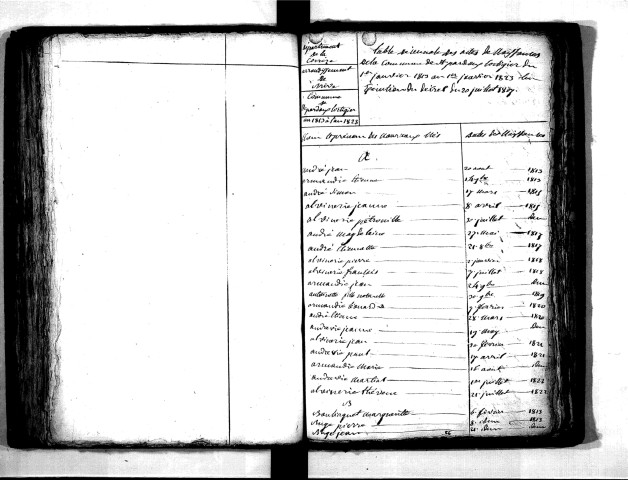 Département
de la
Corrèze
arrondissement
de
Brive
Commune
de
St pardoux Lortigier
an 1813 à l'an 1823
Table décennale des actes de Naissances
de la Commune de St pardoux Lortigier du
1er janvier 1813 au 1er janvier 1823
Exécution du Décret du 20 juillet 1807
Nom et prénom des Nouveaux Nés
dates des Naissances
A
andré jean 20 aout 1813
armandie étienne 1813
andré simon 17 mars 1815
alvinerie jeanne 8 avril 1815
alvinerie pétronille juillet idem
andré magdeleine 27 mai 1817
andré étiennette 21 8bre 1817
alvinerie pierre 2 janvier 1818
alvinerie français 7 juillet 1818
armandie jean idem
fille naturelle 1819
armandie 9 février 1820
andré étienne 28 mars 1820
andrevie jeanne 19 may idem
alvinerie jean 20 février 1821
andrevie paul 17 avril 1821
armandie marie 16 aout idem
andrevie martial 1er juillet 1822
alvinerie thérèse 21 juillet 1822
B
marguerite 6 février 1813
Auge pierre 8 idem 1813
Auge jean idem idem